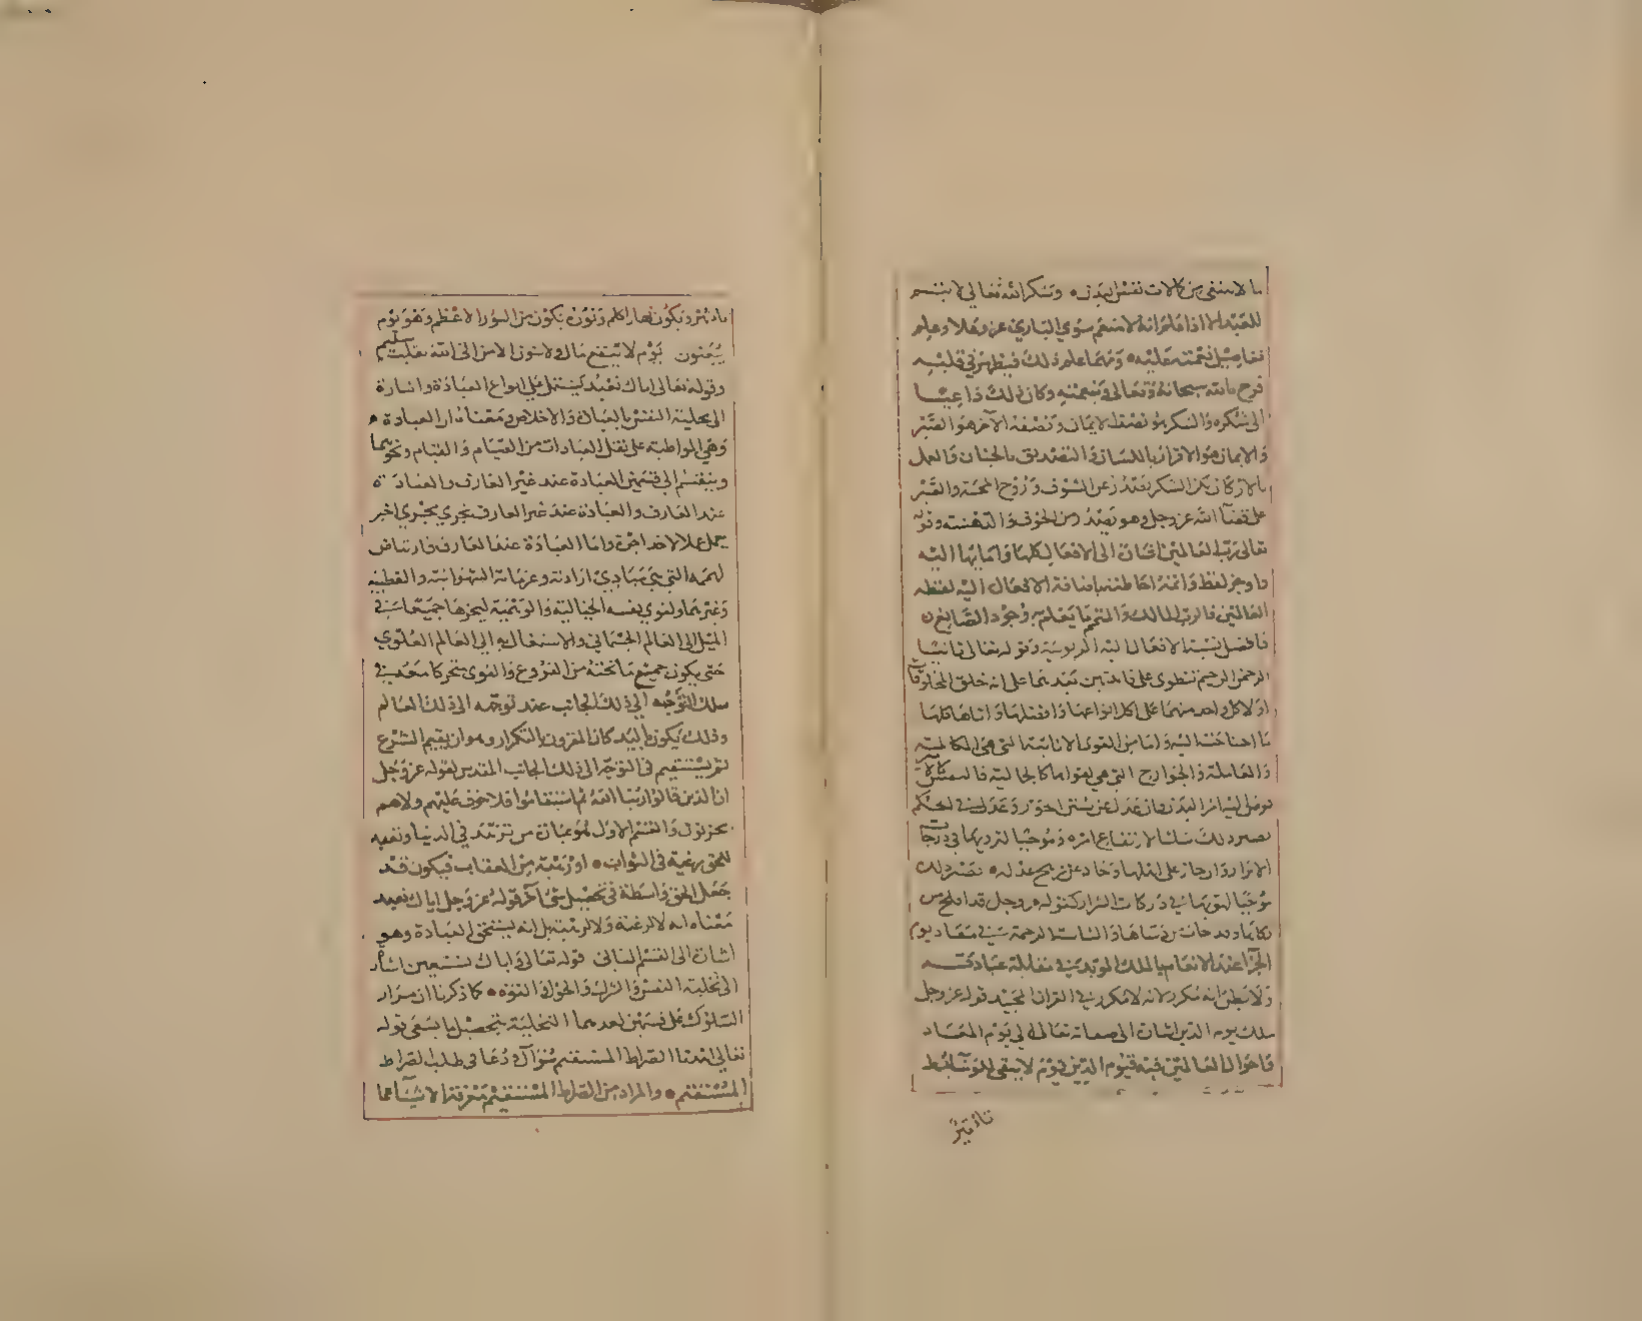 ما لا ينبغي من كمالات نفس لبدن وشكر الله تعالى لا يتسم
للعبد الا اذا علم انه لا منعم سوى الباري عز وعلا وعلم
تفاصيل نعمته عليه ومهما علم ذلك فيظهر في قلبه
فرح بالله سبحانه وتعالى وبنعمته وكان ذلك داعيا
الى شكره والشكر هو نصف الايمان ونصفه الآخر هو الصبر
والايمان هو الاقرار باللسان والتصديق بالجنان والعمل
بالاركان لان الشكر يصدر عن الشوق وروح المحبة والصبر
على قضآ الله عز وجل وهو يصدر من الخوف والدهشة وقوله
تعالى رب العالمين اشارة الى الافعال كلها وامانها اليه
باوجز لفظ واتمه احاطته باضافة الافعال اليه لفظه
العالمين فالرب المالك والمتمم ما يعلم به وجود الصانع
فافضل نسبة الافعال اليه الربوبية وقوله تعالى ثانيا
الرحمن الرحيم تنطوي على
اولا كل واحد منهما على اكل انواعها وافضلها واتاها كلها
ما احتاجت اليه واما من القوى الانسانية التي هي الحاكمة
والعاملة والجوارح التي هي لقواها كالجالية
الى البدن فان عدل عن سنن الجور وعدل في الحكم
يصير ذلك سببا لارتفاع امره وموجبا لترديها في درجات
الابرار وان جار على اهلها وحاد عن نهج عدله يصير ذلك
موجبا لهويها في دركات الشرار كقوله عز وجل قد افلح من
زكاها وقد خاب من دساها والثبات الرحمة في معاد يوم
الجزآ عند الانعام بالملك الموبد في مقابلة عبادته
ولا تظن انه مكرر لانه لا مكرر في القران المجيد قوله عز وجل
ملك يوم الدين اشارة الى صفاته تعالى في يوم المعاد
واحوال العالمين فيه فيوم الدين يوم لا يبقى للوسائط
تاثير
تاثير ويكون نهارا كله ونوره يكون من النور الاعظم وهو يوم
يبعثون يوم لا ينفع مال ولا بنون الا من اتى الله بقلب سليم
وقوله تعالى اياك نعبد يشتمل على انواع العبادة واشارة
الى تحلية النفس بالعبادة والاخلاص ومعناه ان العبادة
وهي المواظبة على نقل العبادات من الصيام والقيام ونحوهما
وينقسم الى قسمين العبادة عند غير العارف والعبادة
عند العارف والعبادة عند غير العارف يجري مجرى اخير
يعمل عملا لاخذ اجرة واما العبادة عند العارف فارتياض
لهممه التي هي مبادي ارادته وعزماته الشهوانية والغضبية
وغيرهما ولقوى نفسه الخيالية والوهمية ليجرها جميعا من
الميل الى العالم الجسماني والاشتغال به الى العالم العلوي
حتى يكون جميع ما تحته من الفروع والقوى متحركا معه في
سلك التوجه الى ذلك الجانب عند توجهه الى ذلك العالم
وذلك يكون المقرون بالتكرار وهو ان يقيم الشرع
ثم يستقيم في التوجه الى ذلك الجانب المقدس لقوله عز وجل
ان الذين قالوا ربنا الله ثم استقاموا فلا خوف عليهم ولا هم
يحزنون والقسم الاول هو عبادة من تزهد في الدنيا وتعبد
للحق رغبة في الثواب او رهبة من العقاب فيكون قد
جعل الحق واسطة في تحصيل شي آخر قوله عز وجل اياك نعبد
معناه انه لا لرغبة ولا لرهبة بل انه ليستحق العبادة وهو
اشارة الى القسم الثاني قوله تعالى واياك نستعين اشارة
الى تخلية النفس والشرك والحول والقوة كما ذكرنا ان مراد
السلوك على قسمين احدهما التخلية بتحصيل ما يبقى قوله
تعالى اهدنا الصراط المستقيم سؤال ودعا في طلب الصراط
المستقيم والمراد من الصراط المستقيم معرفة الاشيآ كما